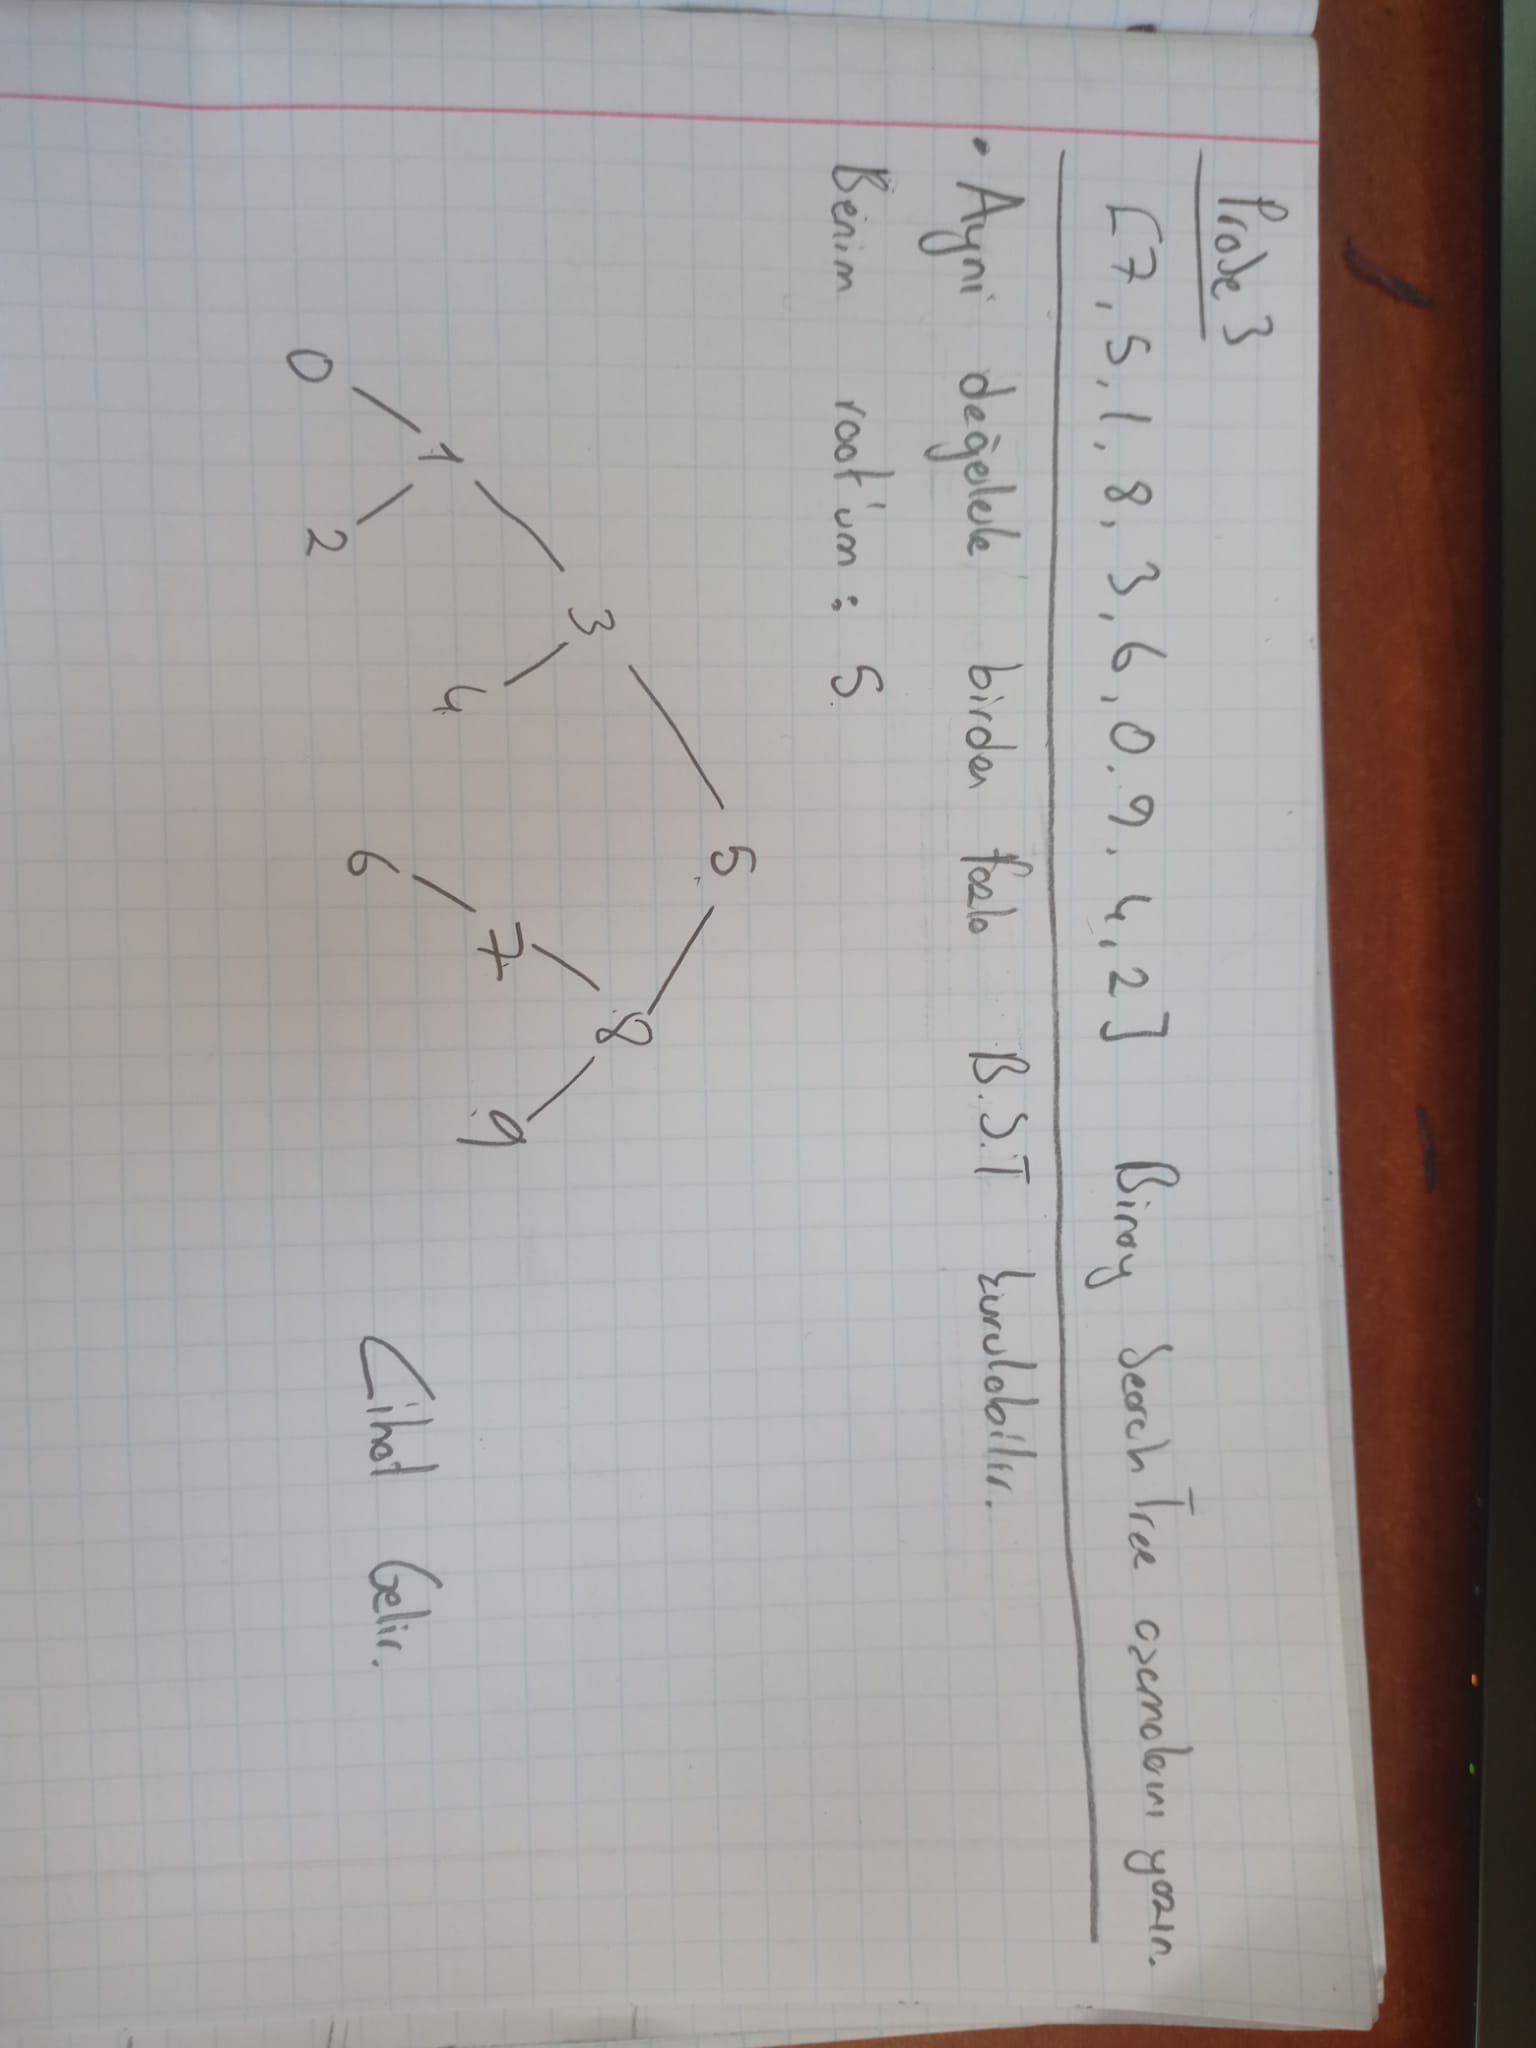 Proje 3
[7, 5, 1, 8, 3, 6, 0, 9, 4, 2] Binary Search Tree aşamalarını yazın.
• Ayni değelerle birden fazla B.S.T kurulabilir.
Benim root'um : 5
5
3 8
7 9
1 4
6
0 2
Cihat Gelir.